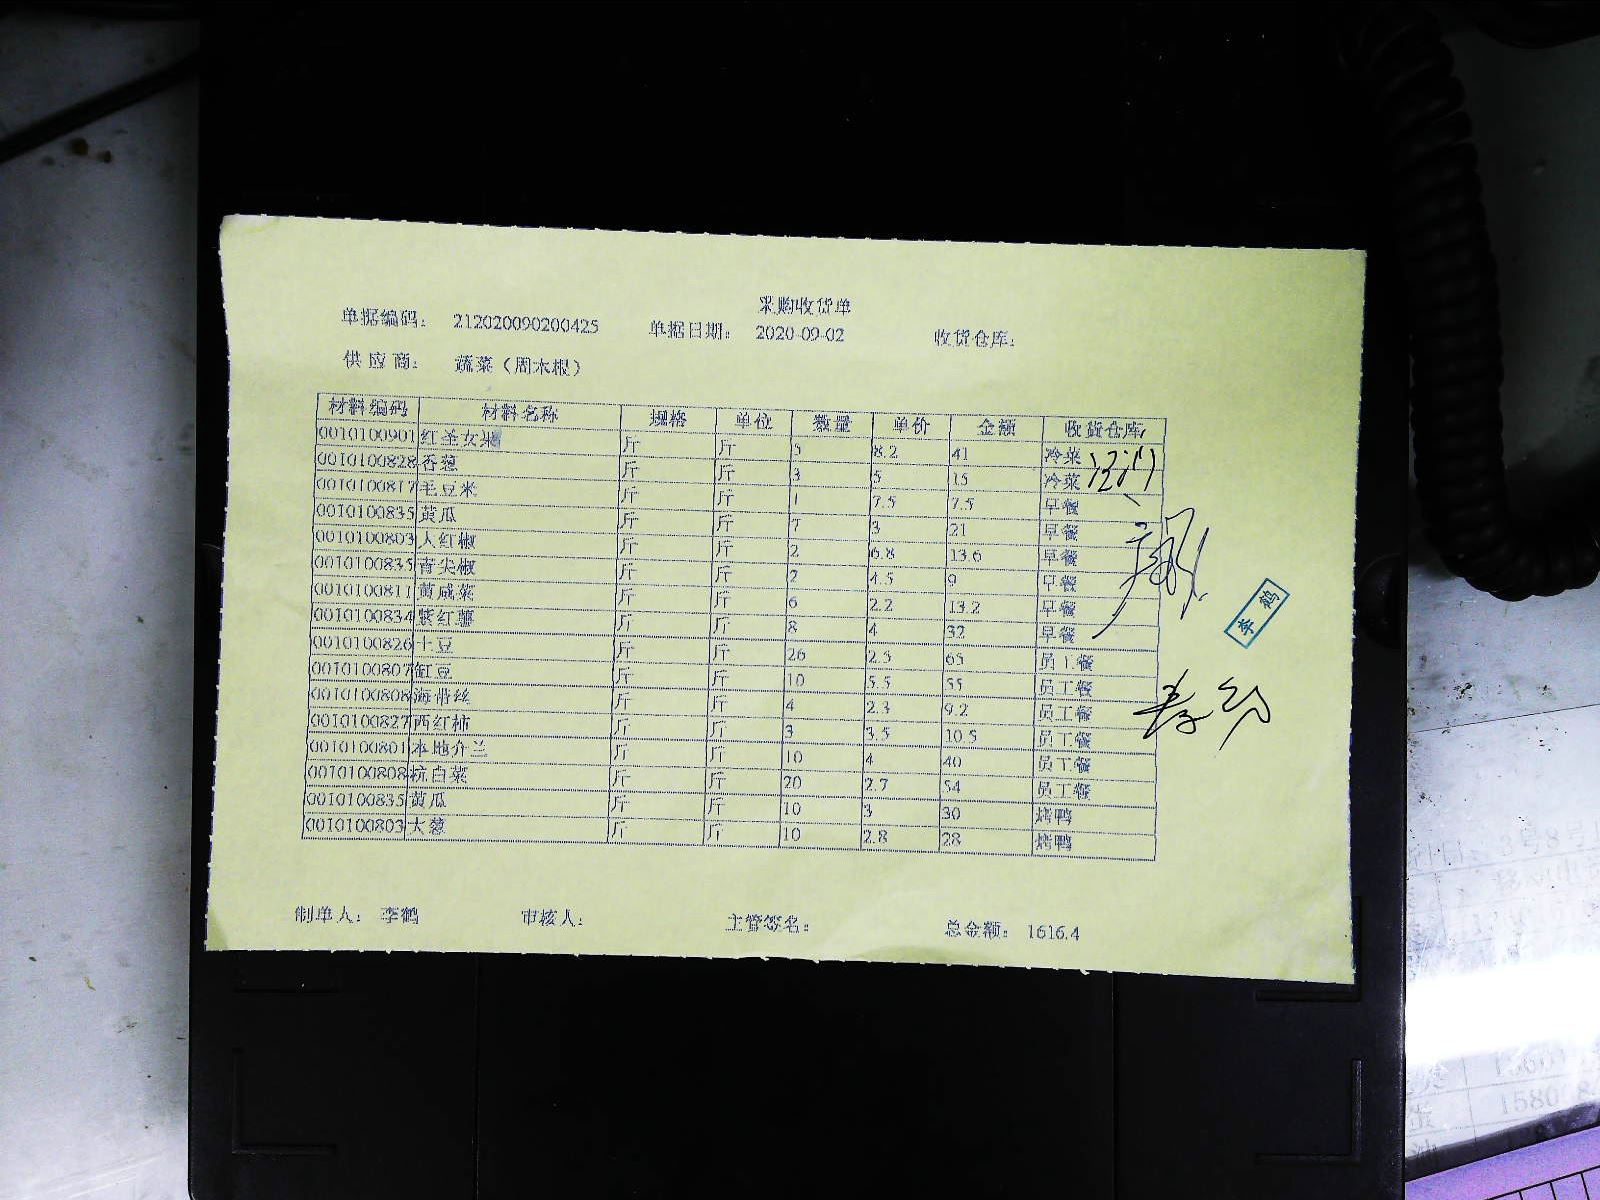 采购收货单
单据编码： 212020090200425 单据日期： 2020-09-02 收货仓库：
供应商： 蔬菜（周木根）
材料编码 材料名称 规格 单位 数量 单价 金额 收货仓库
0010100901 红圣女果 斤 斤 5 8.2 41 冷菜
0010100828 香葱 斤 斤 3 5 15 冷菜
0010100817 毛豆米 斤 斤 1 7.5 7.5 早餐
0010100835 黄瓜 斤 斤 7 3 21 早餐
0010100803 大红椒 斤 斤 2 6.8 13.6 早餐
0010100835 青尖椒 斤 斤 2 4.5 9 早餐
0010100811 黄咸菜 斤 斤 6 2.2 13.2 早餐
0010100834 紫红薯 斤 斤 8 4 32 早餐
0010100826 土豆 斤 斤 26 2.5 65 员工餐
0010100807 缸豆 斤 斤 10 5.5 55 员工餐
0010100808 海带丝 斤 斤 4 2.3 9.2 员工餐
0010100827 西红柿 斤 斤 3 3.5 10.5 员工餐
0010100801 本地介兰 斤 斤 10 4 40 员工餐
0010100808 杭白菜 斤 斤 20 2.7 54 员工餐
0010100835 黄瓜 斤 斤 10 3 30 烤鸭
0010100803 大葱 斤 斤 10 2.8 28 烤鸭
李鹤
制单人： 李鹤 审核人： 主管签名： 总金额： 1616.4